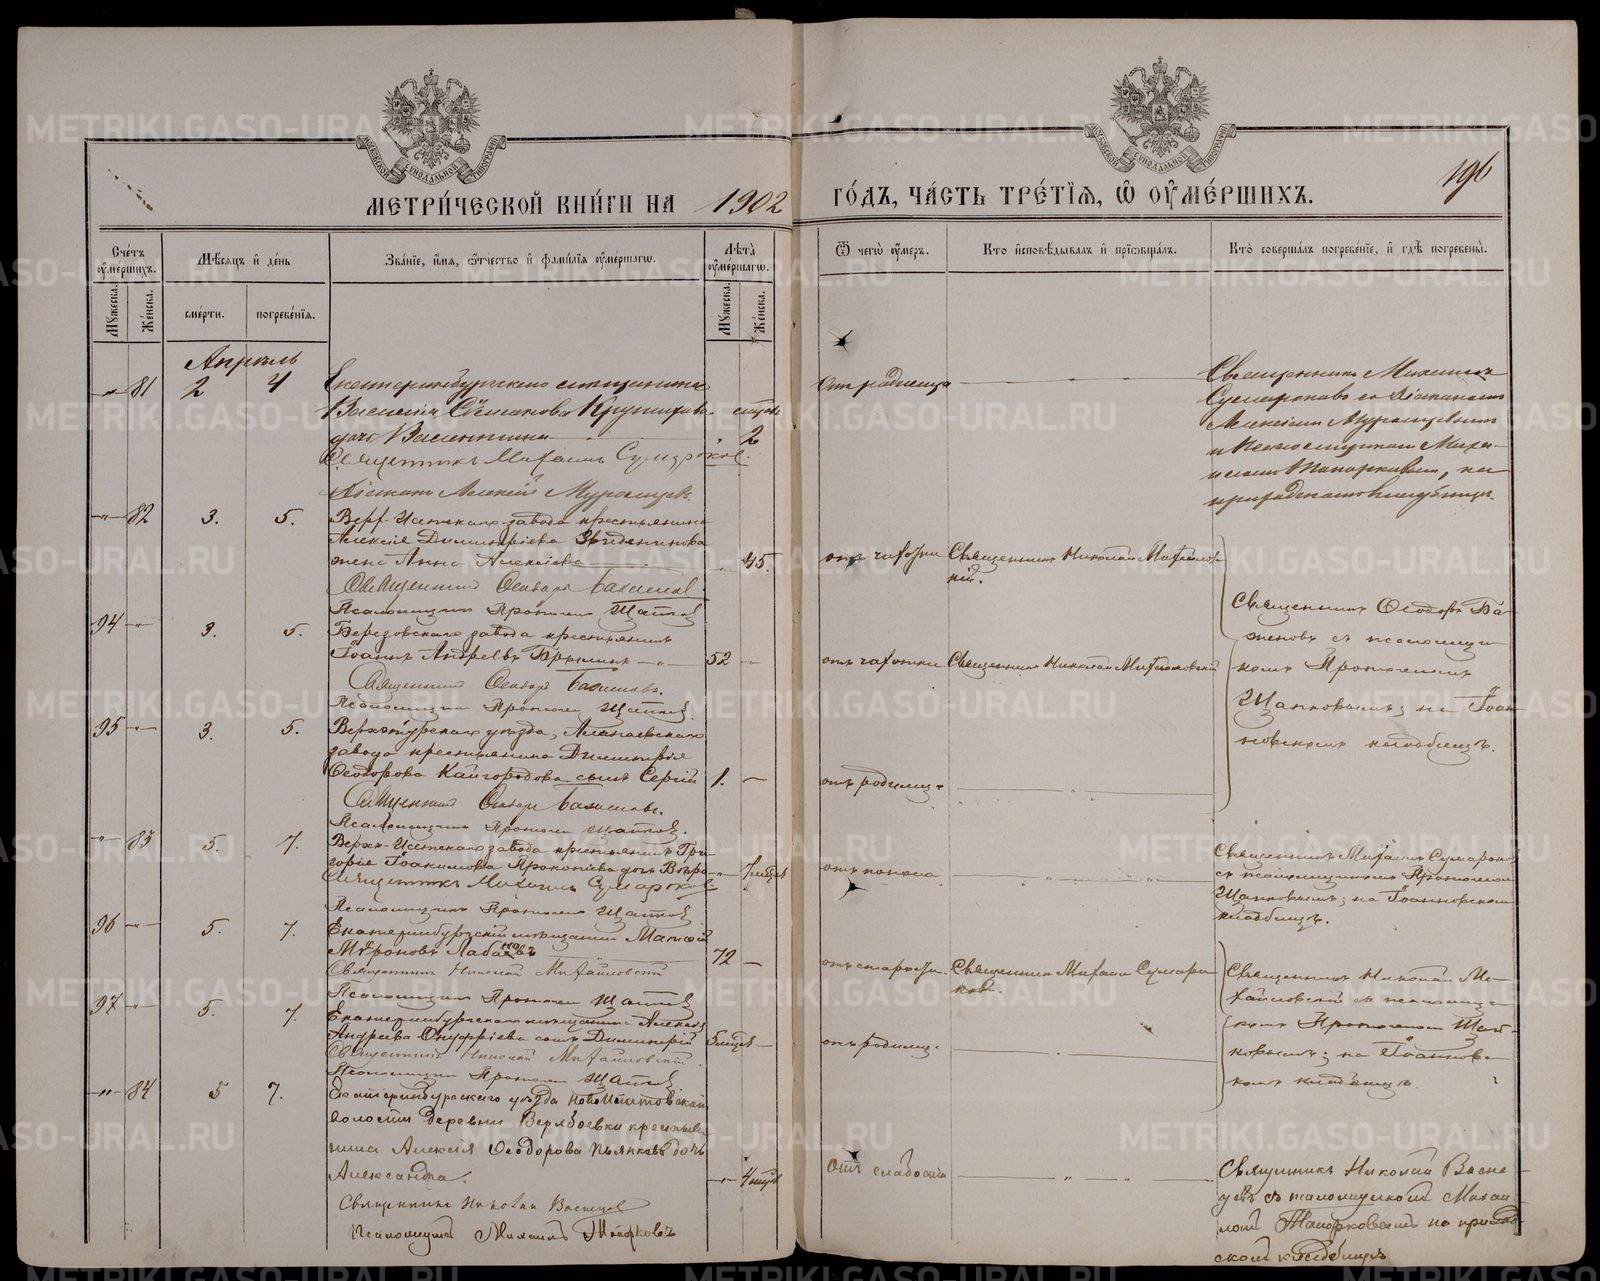 МЕТРИ́ЧЕСКОЙ КНИ́ГИ НА 1902 ГО́ДЪ, ЧА́СТЬ ТРЕ́ТІЯ, Ѡ ОУМЕ́РШИХЪ.
196
Сче́тъ оуме́ршихъ.
Мꙋжеска. Же́нска.
Мѣ́сяцъ и де́нь
сме́рти. погребе́нїя.
Зва́нїе, и́мя, ѻ́тчество и фами́лїя оуме́ршагѡ.
Лѣта̀ оуме́ршагѡ.
Мꙋжеска. Же́нска.
Ѿ чегѡ̀ оу́меръ.
Кто̀ и҆сповѣ́дывалъ и҆ прїѡбща́лъ.
Кто̀ соверша́лъ погребе́нїе, и҆ гдѣ̀ погребены̀.
Апрѣль
81 2 4 Екатеринбургскаго мѣщанина
Василія
дочь Валентина 2
Священникъ Михаилъ Сумароковъ.
Діаконъ Алексій
Отъ родимца
Священникъ Михаилъ
Сумароковъ съ Діакономъ
Алексіемъ
и Псаломщикомъ Миха-
иломъ Топорковымъ, на
приходскомъ кладбищѣ
82 3. 5. Верх-Исетскаго завода крестьянина
Алексія Димитріева
жена Анна Алексіева 45.
Священникъ Ѳеодоръ Баженовъ.
Псаломщикъ Прокопій Щапковъ
отъ чахотки Священникъ Николай Михайловскій.
94 3. 5. Березовскаго завода крестьянинъ
Іоаннъ Андреевъ 52
Священникъ Ѳеодоръ Баженовъ.
Псаломщикъ Прокопій Щапковъ
отъ чахотки Священникъ Николай Михайловскій
Священникъ Ѳеодоръ Ба-
женовъ съ псаломщи-
комъ Прокопіемъ
Щапковымъ; на Іоан-
новскомъ кладбищѣ.
95 3. 5. Верхотурскаго уѣзда, Алапаевскаго
завода крестьянина Димитрія
Ѳеодорова Кайгородова сынъ Сергій 1.
Священникъ Ѳеодоръ Баженовъ.
Псаломщикъ Прокопій Щапковъ.
отъ родимца
83 5. 7. Верхъ-Исетскаго завода крестьянина Гри-
горія Іоакимова Прокопіева дочь Вѣра 7 мѣсяц
Священникъ Михаилъ Сумароковъ
Псаломщикъ Прокопій Щапковъ
отъ поноса
Священникъ Михаилъ Сумароковъ
съ псаломщикомъ Прокопіемъ
Щапковымъ; на Іоанновскомъ
кладбищѣ.
96 5. 7. Екатеринбургскій мѣщанинъ
72
Священникъ Николай Михайловскій
Псаломщикъ Прокопій Щапковъ
отъ старости. Священникъ Михаилъ Сумаро-
ковъ.
Священникъ Николай Ми-
хайловскій съ псаломщи-
комъ Прокопіемъ Щап-
ковымъ; на Іоанновс-
комъ кладбищѣ.
97 5. 7. Екатеринбургскаго мѣщанина Алексія
Андреева Онуфріева сынъ Димитрій 5 мѣсяц
Священникъ Николай Михайловскій
Псаломщикъ Прокопій Щапковъ
отъ родимца
84 5 7. Екатеринбургскаго уѣзда
волости деревни крестья-
нина Алексія Ѳеодорова Пьянкова дочь
Александра. 4 мѣсяц
Священникъ Николай Васнецовъ
Псаломщикъ Михаилъ Топорковъ
Отъ слабости
Священникъ Николай Васне-
цовъ съ псаломщикомъ Михаи-
ломъ Топорковымъ на приход-
скомъ кладбищѣ
METRIKI.GASO-URAL.RU